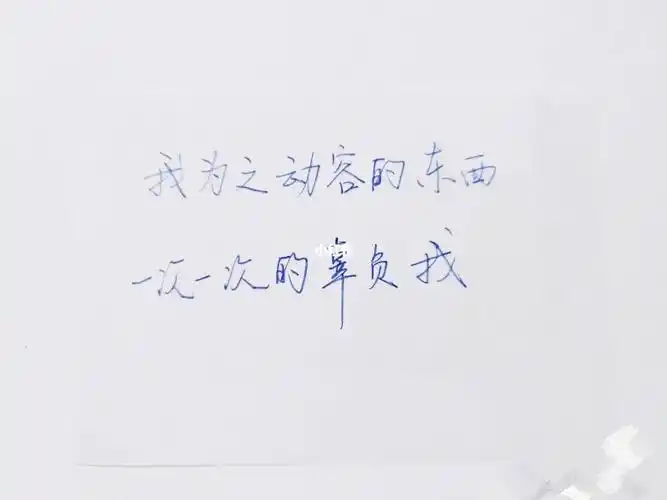 我为之动容的东西
一次一次的辜负我